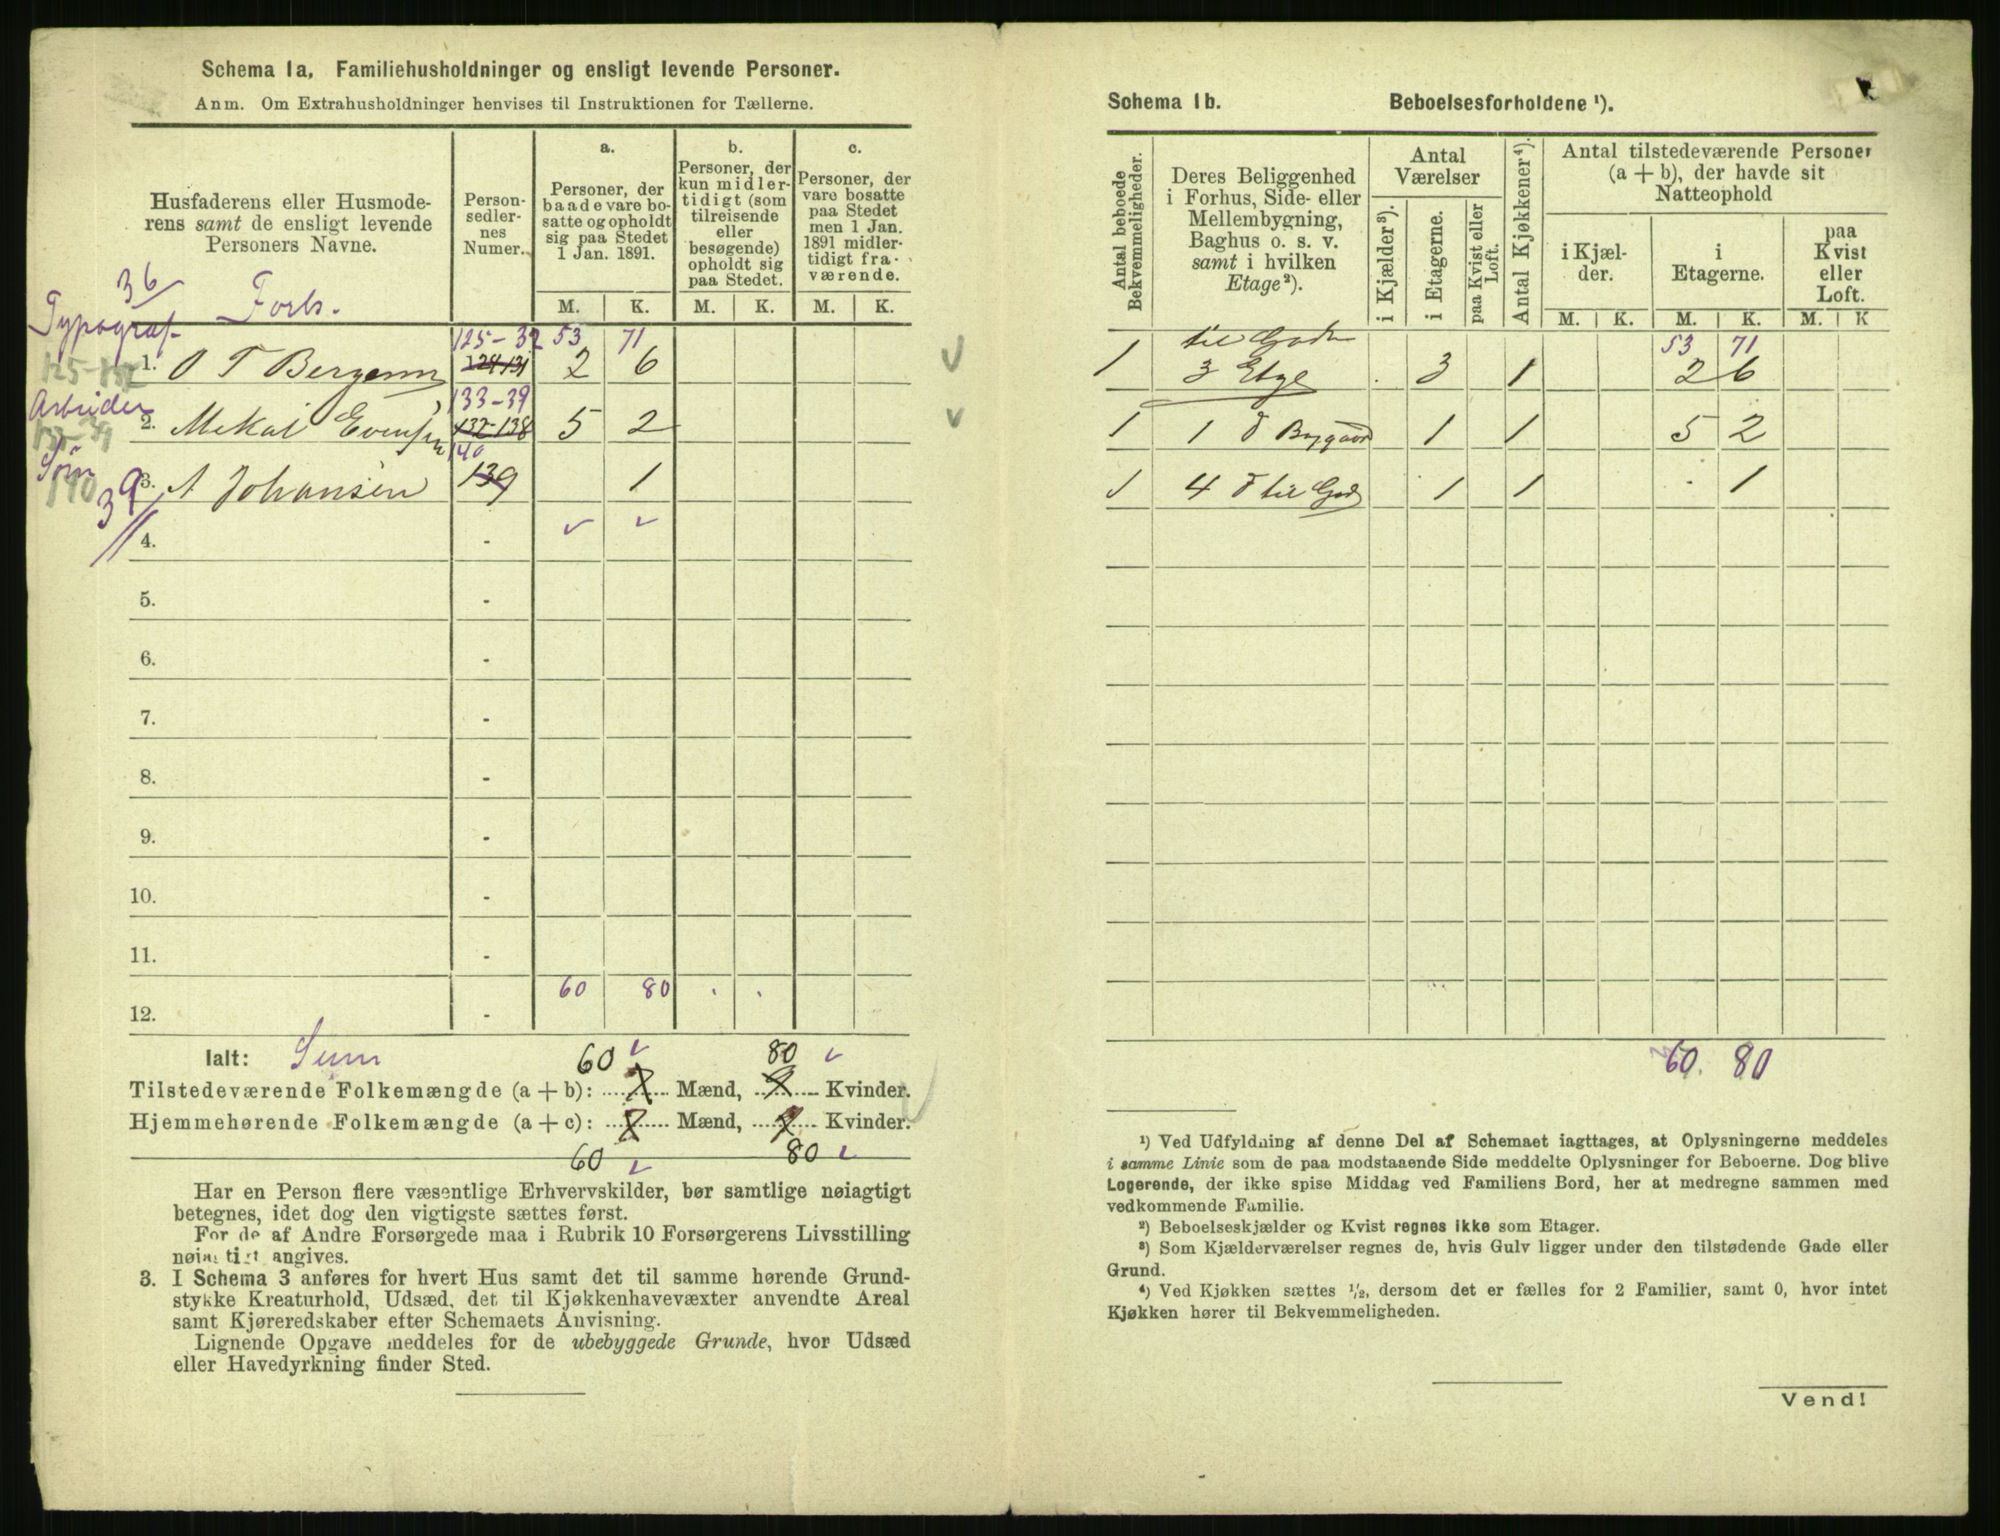 Schema 1a. Familiehusholdninger og ensligt levende Personer.
Anm. Om Extrahusholdninger henvises til Instruktionen for Tællerne.
Husfaderens eller Husmode-
rens samt de ensligt levende
Personers Navne.
Person-
sedler-
nes
Numer.
a.
Personer, der
baade vare bo-
satte og opholdt
sig paa Stedet
1 Jan. 1891.
b.
Personer, der
kun midler-
tidigt (som
tilreisende
eller
besøgende)
opholdt sig
paa Stedet.
c.
Personer, der
vare bosatte
paa Stedet
men 1 Jan.
1891 midler-
tidigt fra-
værende.
M. K. M. K. M. K.
36
Typograf Forts.
125-32 53 71
1. O T Bergersen 124-131 2 6
125-132
Arbeider 133-39
2. Mekal Evensen 132-138 5 2
133-39
140
3. A Johansen 139 1
140
39
4. -
5. -
6. -
7. -
8. -
9. -
10. -
11. -
60 80 . .
12. -
Ialt: Sum
60 80
Tilstedeværende Folkemængde (a + b): 7 Mænd, 9 Kvinder.
Hjemmehørende Folkemængde (a + c): 7 Mænd, 9 Kvinder.
60 80
Har en Person flere væsentlige Erhvervskilder, bør samtlige nøiagtigt
betegnes, idet dog den vigtigste sættes først.
For de af Andre Forsørgede maa i Rubrik 10 Forsørgerens Livsstilling
nøiagtigt angives.
3. I Schema 3 anføres for hvert Hus samt det til samme hørende Grund-
stykke Kreaturhold, Udsæd, det til Kjøkkenhavevæxter anvendte Areal
samt Kjøreredskaber efter Schemaets Anvisning.
Lignende Opgave meddeles for de ubebyggede Grunde, hvor Udsæd
eller Havedyrkning finder Sted.
Schema 1b. Beboelsesforholdene ¹).
Antal beboede
Bekvemmeligheder.
Deres Beliggenhed
i Forhus, Side- eller
Mellembygning,
Baghus o. s. v.
samt i hvilken
Etage²).
Antal
Værelser
i Kjælder³).
i Etagerne.
paa Kvist eller
Loft.
Antal Kjøkkener⁴).
Antal tilstedeværende Personer
(a + b), der havde sit
Natteophold
i Kjæl-
der.
i
Etagerne.
paa
Kvist
eller
Loft.
M. K. M. K. M. K
til Gaden 53 71
1 3 Etge 3 1 2 6
1 1 d Bygaard 1 1 5 2
1 4 d til Gad 1 1 1
60. 80
¹) Ved Udfyldning af denne Del af Schemaet iagttages, at Oplysningerne meddeles
i samme Linie som de paa modstaaende Side meddelte Oplysninger for Beboerne. Dog blive
Logerende, der ikke spise Middag ved Familiens Bord, her at medregne sammen med
vedkommende Familie.
²) Beboelseskjælder og Kvist regnes ikke som Etager.
³) Som Kjælderværelser regnes de, hvis Gulv ligger under den tilstødende Gade eller
Grund.
⁴) Ved Kjøkken sættes ½, dersom det er fælles for 2 Familier, samt 0, hvor intet
Kjøkken hører til Bekvemmeligheden.
Vend!